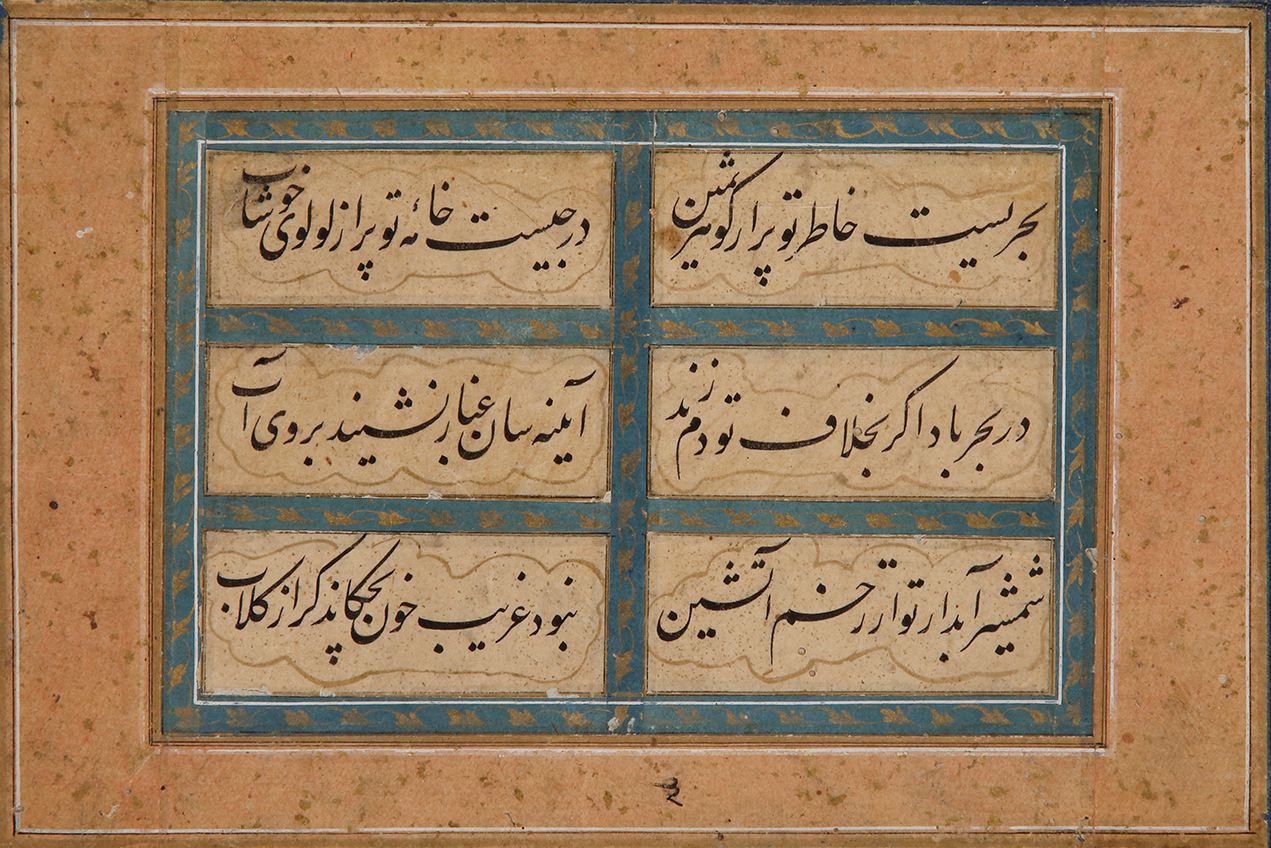 بحریست خاطر تو پر از گوهر ثمین
درجیست خامهٔ تو پر از لولوی خوشاب
در بحر باد اگر بخلاف تو دم زند
آیینه سان غبار نشیند بروی آب
شمشیر آبدار تو از زخم آتشین
نبود غریب خون بچکاند گر از گلاب